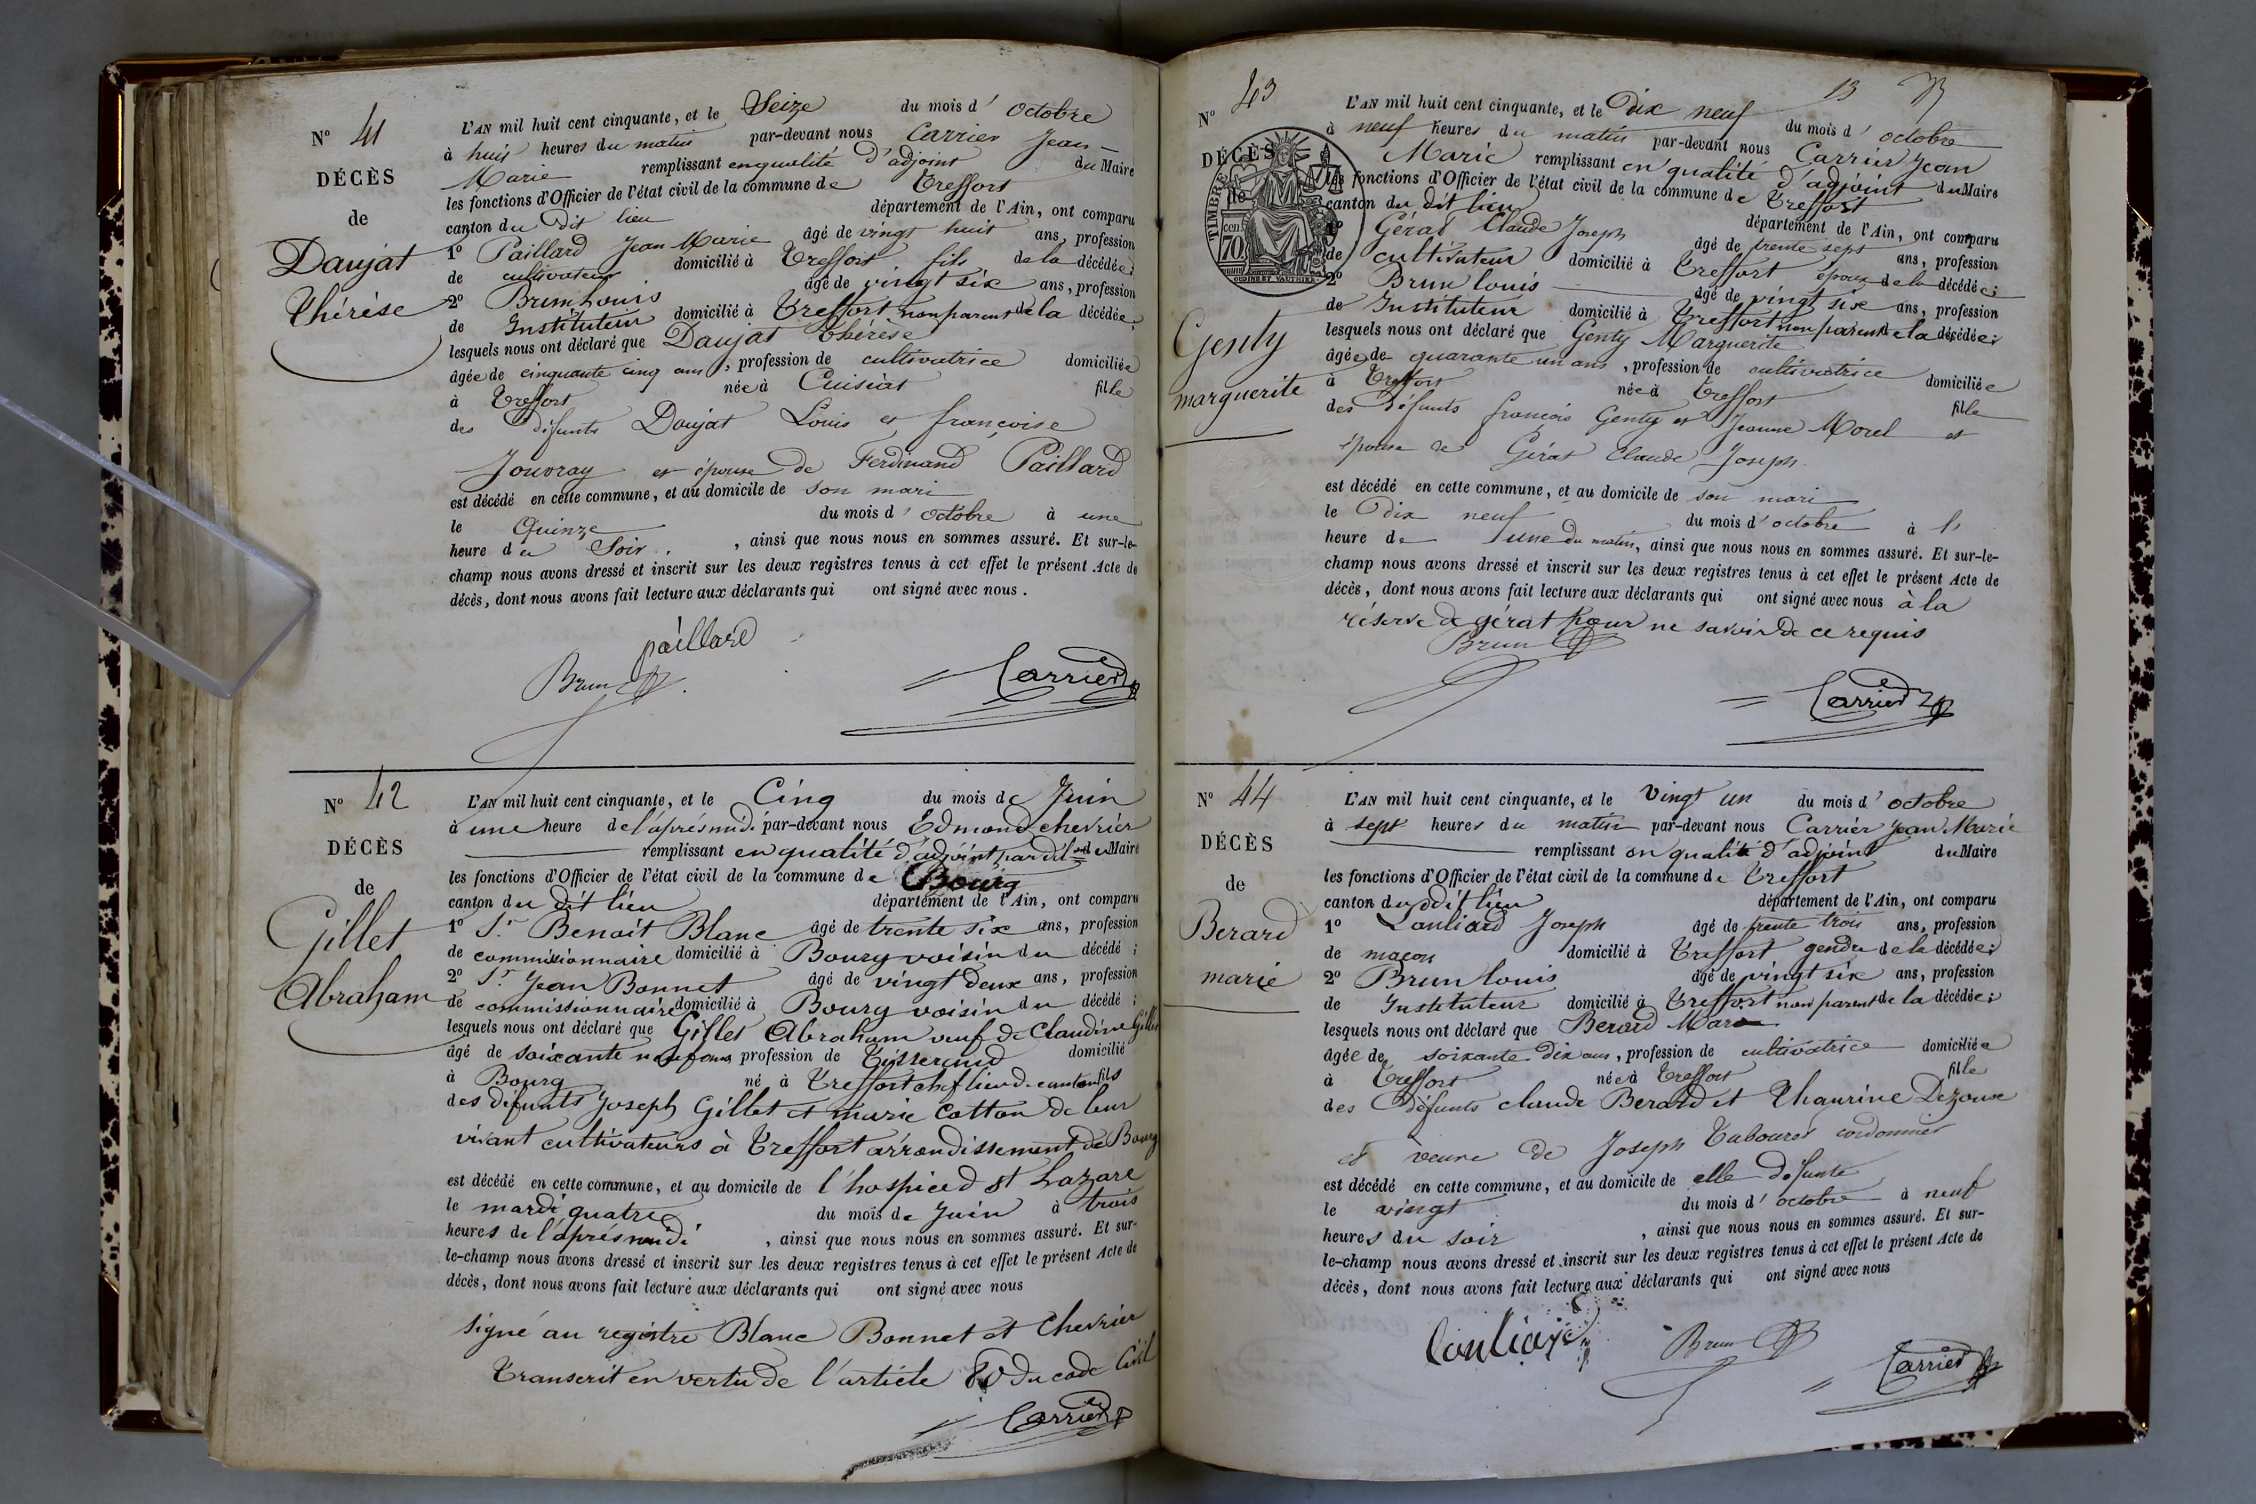 N° 41
DÉCÈS
de
Daujat
Thérèse
L'AN mil huit cent cinquante, et le Seize du mois d' octobre
à huit heures du matin par-devant nous Carrier Jean-
Marie remplissant en qualité d'adjoint du Maire
les fonctions d'Officier de l'état civil de la commune de Treffort
canton du dit lieu département de l'Ain, ont comparu
1° Paillard Jean Marie âgé de vingt huit ans, profession
de cultivateur domicilié à Treffort fils de la décédée;
2° Brun Louis âgé de vingt six ans, profession
de Instituteur domicilié à Treffort non parent de la décédée;
lesquels nous ont déclaré que Daujat Thérèse
âgée de cinquante cinq ans, profession de cultivatrice domiciliée
à Treffort née à Cuisiat fille
des défunts Daujat Louis et françoise
Jouvray et épouse de Ferdinand Paillard
est décédé en cette commune, et au domicile de son mari
le Quinze du mois d' octobre à une
heure du Soir, ainsi que nous nous en sommes assuré. Et sur-le-
champ nous avons dressé et inscrit sur les deux registres tenus à cet effet le présent Acte de
décès, dont nous avons fait lecture aux déclarants qui ont signé avec nous.
paillard
Brun Carrier
N° 42
DÉCÈS
de
Gillet
Abraham
L'AN mil huit cent cinquante, et le Cinq du mois de Juin
à une heure de l'après midi par-devant nous Edmond chevrier
remplissant en qualité d'adjoint par dél.on du Maire
les fonctions d'Officier de l'état civil de la commune de Bourg
canton du dit lieu département de l'Ain, ont comparu
1° Sr Benoit Blanc âgé de trente six ans, profession
de commissionnaire domicilié à Bourg voisin du décédé;
2° Sr Jean Bonnet âgé de vingt deux ans, profession
de commissionnaire domicilié à Bourg voisin du décédé;
lesquels nous ont déclaré que Gillet Abraham veuf de Claudine Gillet
âgé de soixante neuf ans profession de Tisserand domicilié
à Bourg né à Treffort chef lieu de canton fils
des défunts Joseph Gillet et marie Cotton de leur
vivant cultivateurs à Treffort arrondissement de Bourg
est décédé en cette commune, et au domicile de l'hospice d St Lazare
le mardi quatre du mois de Juin à trois
heures de l'après midi, ainsi que nous nous en sommes assuré. Et sur-
le-champ nous avons dressé et inscrit sur les deux registres tenus à cet effet le présent Acte de
décès, dont nous avons fait lecture aux déclarants qui ont signé avec nous
signé au registre Blanc Bonnet et Chevrier
Transcrit en vertu de l'article 80 du code Civil
Carrier
13
N° 43
DÉCÈS
de
TIMBRE
cen. 70
Genty
marguerite
L'AN mil huit cent cinquante, et le Dix neuf du mois d' octobre
à neuf heures du matin par-devant nous Carrier Jean
Marie remplissant en qualité d'adjoint du Maire
les fonctions d'Officier de l'état civil de la commune de Treffort
canton du dit lieu département de l'Ain, ont comparu
1° Gérat Claude Joseph âgé de trente sept ans, profession
de cultivateur domicilié à Treffort époux de la décédée;
2° Brun louis âgé de vingt six ans, profession
de Instituteur domicilié à Treffort non parent de la décédée;
lesquels nous ont déclaré que Genty Marguerite
âgée de quarante un ans, profession de cultivatrice domiciliée
à Treffort née à Treffort fille
des défunts françois Genty et Jeanne Morel et
épouse de Gérat Claude Joseph
est décédé en cette commune, et au domicile de son mari
le Dix neuf du mois d'octobre à l'
heure de une du matin, ainsi que nous nous en sommes assuré. Et sur-le-
champ nous avons dressé et inscrit sur les deux registres tenus à cet effet le présent Acte de
décès, dont nous avons fait lecture aux déclarants qui ont signé avec nous à la
réserve de gérat pour ne savoir de ce requis
Brun
Carrier
N° 44
DÉCÈS
de
Berard
marie
L'AN mil huit cent cinquante, et le Vingt un du mois d' octobre
à sept heures du matin par-devant nous Carrier Jean Marie
remplissant en qualité d'adjoint du Maire
les fonctions d'Officier de l'état civil de la commune de Treffort
canton du dit lieu département de l'Ain, ont comparu
1° Louliard Joseph âgé de trente trois ans, profession
de maçon domicilié à Treffort gendre de la décédée;
2° Brun louis âgé de vingt six ans, profession
de Instituteur domicilié à Treffort non parent de la décédée;
lesquels nous ont déclaré que Berard Marie
âgée de soixante dix ans, profession de cultivatrice domiciliée
à Treffort née à Treffort fille
des défunts claude Berard et Thaurine Dezoux
et veuve de Joseph Tabouret cordonnier
est décédé en cette commune, et au domicile de elle défunte
le vingt du mois d' octobre à neuf
heures du soir, ainsi que nous nous en sommes assuré. Et sur-
le-champ nous avons dressé et inscrit sur les deux registres tenus à cet effet le présent Acte de
décès, dont nous avons fait lecture aux déclarants qui ont signé avec nous
Brun
Carrier